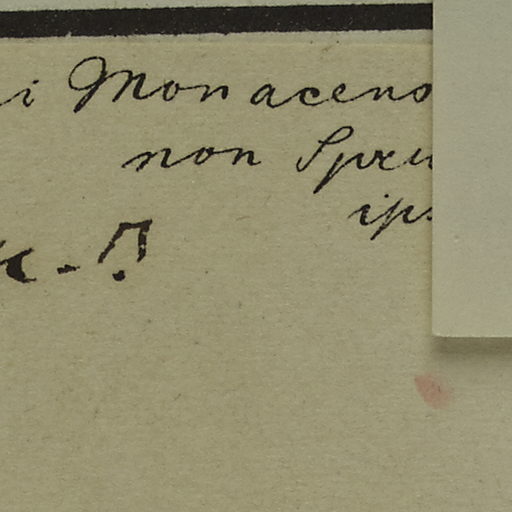 i Monacens
non Spru
ips